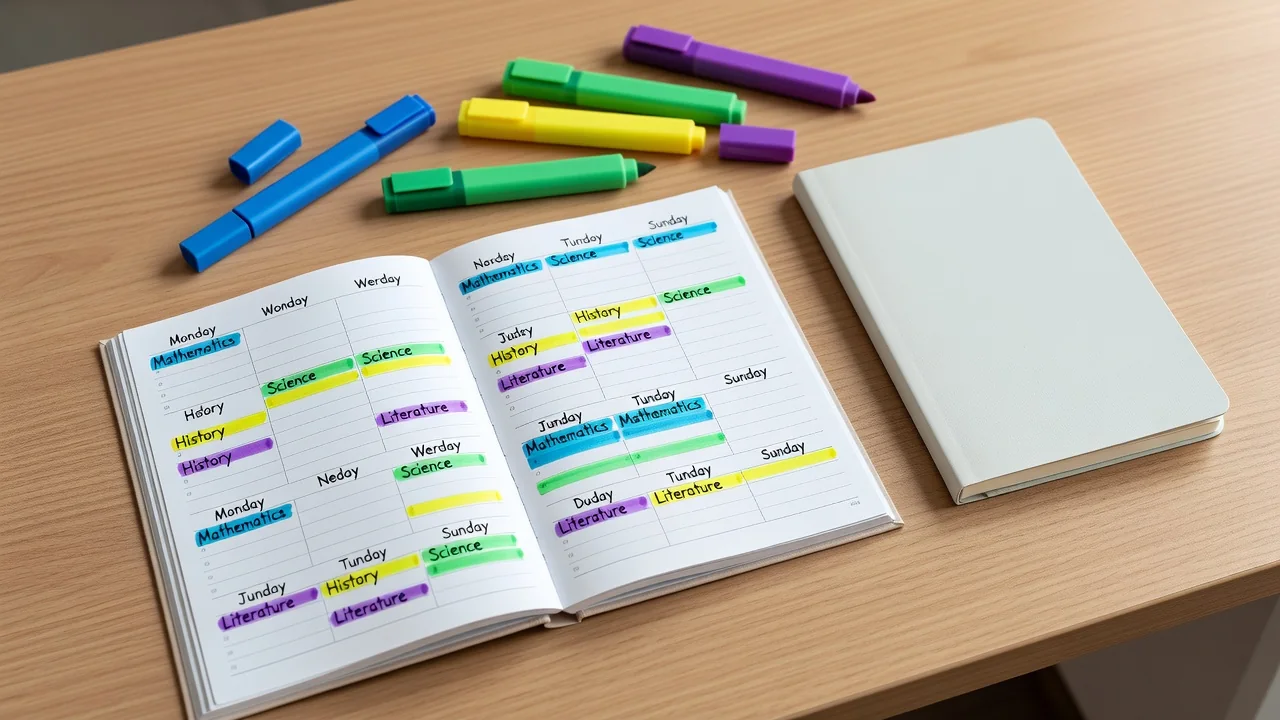 Monday
Wonday
Werday
Mathematics
Science
Science
Hdory
History
Literature
History
Monday
Neday
Werday
Mathematics
Science
Junday
Tunday
Sunday
Literature
History
Science
Literature
Norday
Tunday
Sunday
Mathematics
Science
Science
History
Science
History
Literature
Literature
Junday
Tunday
Sunday
Mathematics
Mathematics
Duday
Tunday
Sunday
Literature
Literature